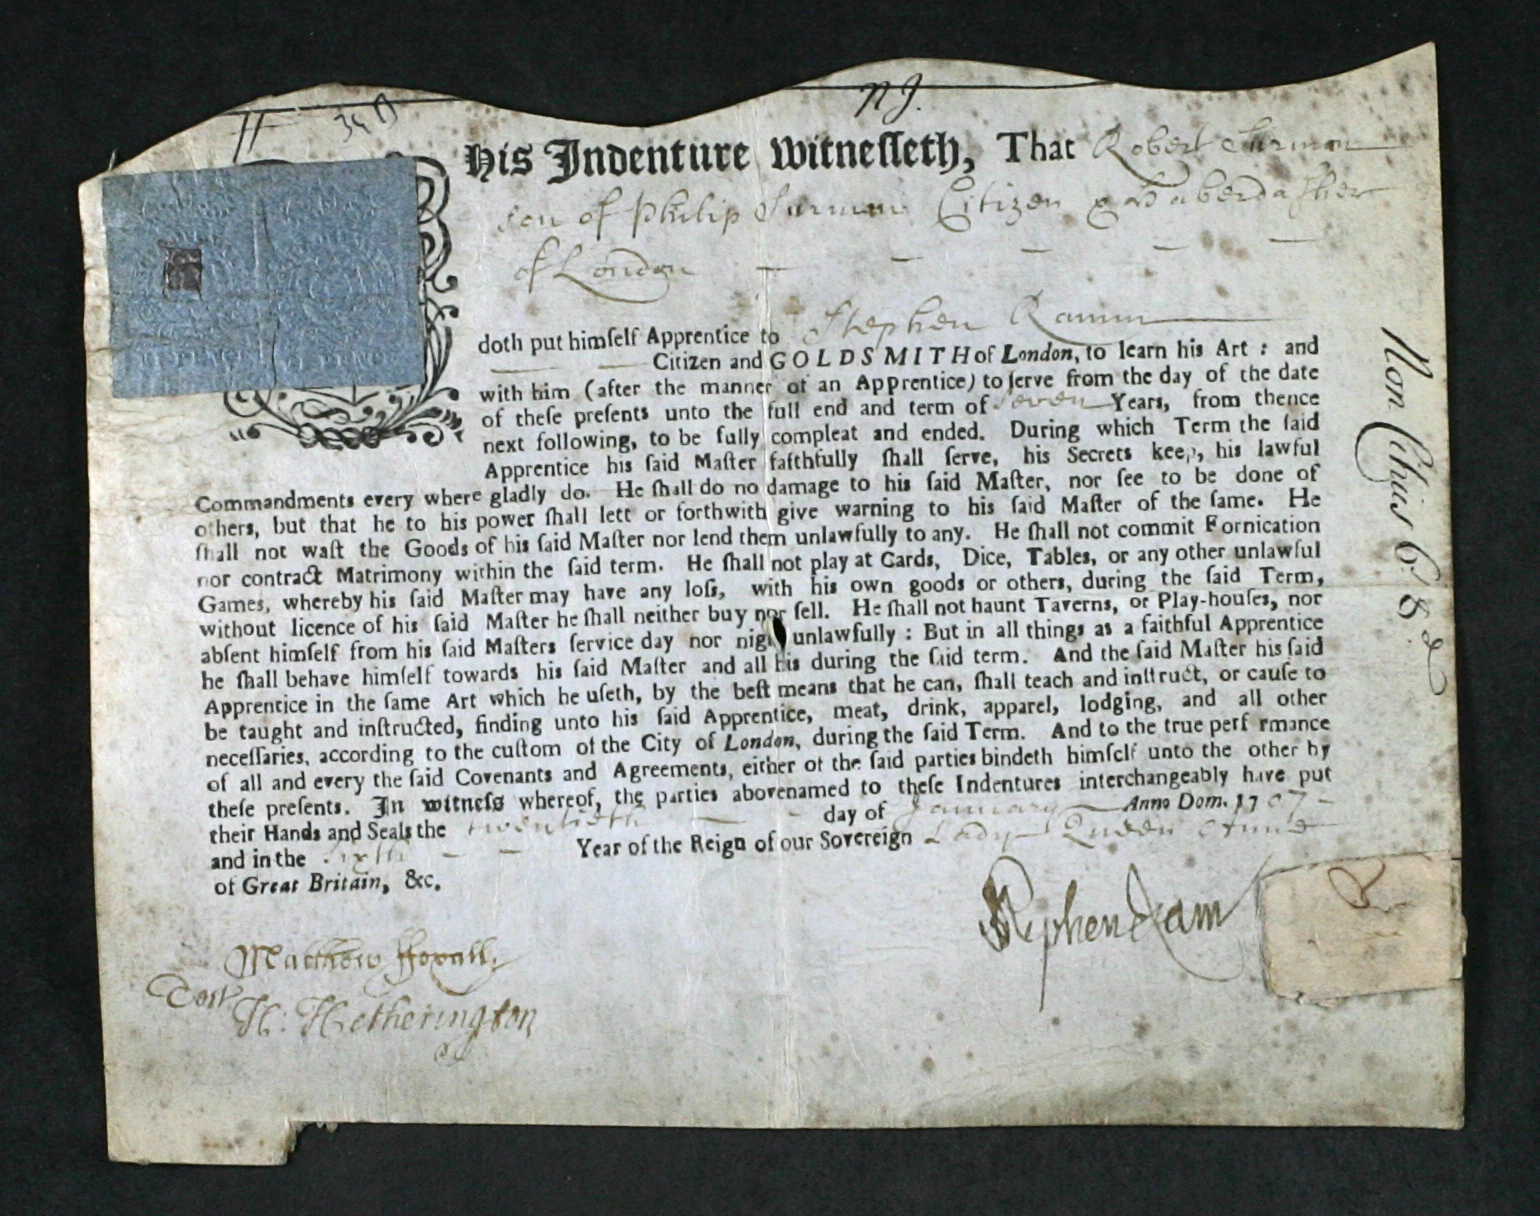 NJ.
His Indenture Witneſſeth, That Robert Surman
son of Philip Surman Citizen & Haberdasher
of London
doth put himſelf Apprentice to Stephen Ramm
Citizen and GOLDSMITH of London, to learn his Art: and
with him (after the manner of an Apprentice) to ſerve from the day of the date
of theſe preſents unto the full end and term of Seven Years, from thence
next following, to be fully compleat and ended. During which Term the ſaid
Apprentice his ſaid Maſter faithfully ſhall ſerve, his Secrets keep, his lawful
Commandments every where gladly do. He ſhall do no damage to his ſaid Maſter, nor ſee to be done of
others, but that he to his power ſhall lett or forthwith give warning to his ſaid Maſter of the ſame. He
ſhall not waſt the Goods of his ſaid Maſter nor lend them unlawfully to any. He ſhall not commit Fornication
nor contract Matrimony within the ſaid term. He ſhall not play at Cards, Dice, Tables, or any other unlawful
Games, whereby his ſaid Maſter may have any loſs, with his own goods or others, during the ſaid Term,
without licence of his ſaid Maſter he ſhall neither buy nor ſell. He ſhall not haunt Taverns, or Play-houſes, nor
abſent himſelf from his ſaid Maſters ſervice day nor nig unlawfully: But in all things as a faithful Apprentice
he ſhall behave himſelf towards his ſaid Maſter and all his during the ſaid term. And the ſaid Maſter his ſaid
Apprentice in the ſame Art which he uſeth, by the beſt means that he can, ſhall teach and inſtruct, or cauſe to
be taught and inſtructed, finding unto his ſaid Apprentice, meat, drink, apparel, lodging, and all other
neceſſaries, according to the cuſtom of the City of London, during the ſaid Term. And to the true perf rmance
of all and every the ſaid Covenants and Agreements, either of the ſaid parties bindeth himſelf unto the other by
theſe preſents. In witneſs whereof, the parties abovenamed to theſe Indentures interchangeably have put
their Hands and Seals the twentieth day of January Anno Dom. 1707
and in the Sixth Year of the Reign of our Sovereign Lady Queen Anne
of Great Britain, &c.
Stephen Ram
Matthew
H: Hetherington